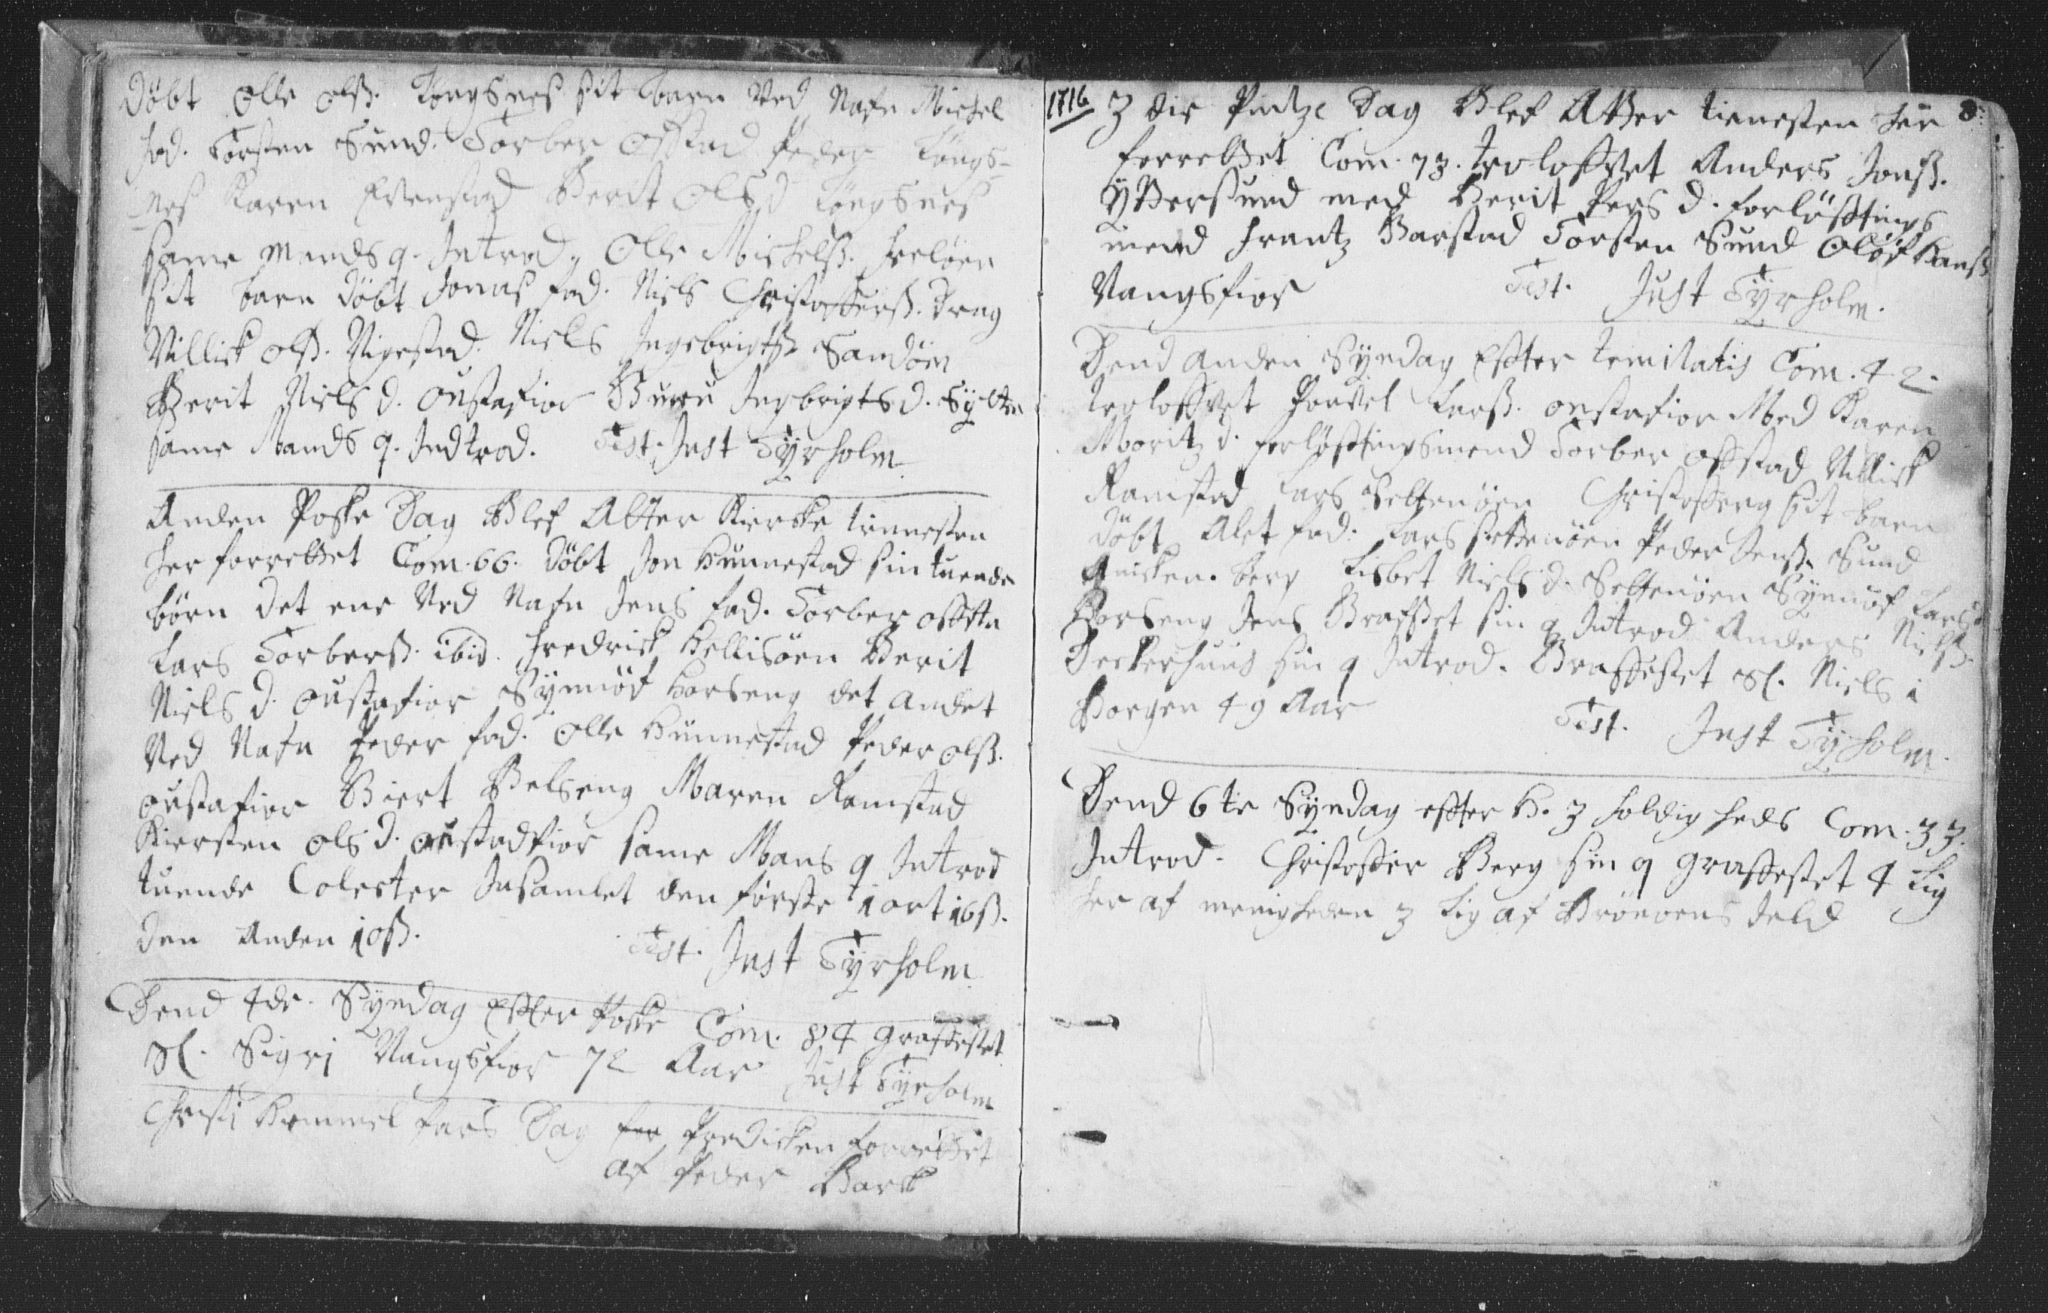 Döbt Olle Olss. Tongsnes sit barn Ved Nafn Michel
fad. Torsten Sund. Torber Ofstad Peder Tongs-
nes Karen Evenstad Berit Ols d Tongsnes
same Mands q. Introd. Olle Michelss. Freloen
sit barn Döbt Jonas fad. Niels Christoffers. Drag
Villick Olss. Vigestad. Niels Ingebrigtss Sandöen
Berit Niels d. Oustafior Buru Ingbrigts d. Sylten
same Mands q. Indtrod. Test. Just Tyrholm
Anden Poske Dag Blef Alter Kierke tienesten
her forrettet Com. 66. Döbt Jon Hunnestad sin tuende
börn det ene Ved Nafn Jens fad. Torber ofsta
Lars Torberss. ibid. Fredrick Hellisöen Berit
Niels d. Oustafior Synnöf Horseng det andet
Ved Nafn Peder fad. Olle Hunnestad Peder Olss.
Oustafior Biert Belseng Maren Ramstad
Kiersten Ols d. Oustadfior same Mans q Introd
tuende Colecter Insamlet den förste 1 ort 16 ss.
den anden 10 ss. Test. Just Tyrholm
Dend 4de. Syndag Efter Poske Com. 84 graffestet
Sl. Sigri Vangsfior 72 Aar Just Tyrholm
Christi Himmel fars Dag Predicken forrettet
af Peder Barck
1716 3 die Pintze Dag Blef Alter tienesten her 8
forrettet Com. 73. trolofvet Anders Jonss.
Yttersund med Berit Pers d. forlöftings
mend Frantz Barstad Torsten Sund Olöf Hanss
Vangsfior Test. Just Tyrholm.
Dend anden Syndag Efter temitatis Com. 42.
trolofvet Povel Larss. oustafior Med Karen
Moritz d. forlöftingsmend Torber Ofstad Villick
Ramstad Lars Seltenöen Christofferg sit barn
Döbt Alet fad: Lars seltenöen Peder Jenss. Sund
Anicken. berg Lisbet Niels d. Seltenöen Synnöf Lars d
Horseng Jens Brafset sin q Introd Anders Nielss.
Deckerhuus sin q Introd. Graffestet Sl. Niels i
Borgen 49 Aar Test. Just Tyrholm.
Dend 6te Syndag efter H. 3 foldig heds Com. 33.
Introd. Christoffer Berg sin q graffestet 4 Lig
her af menigheden 3 Lig af Bröevens deld